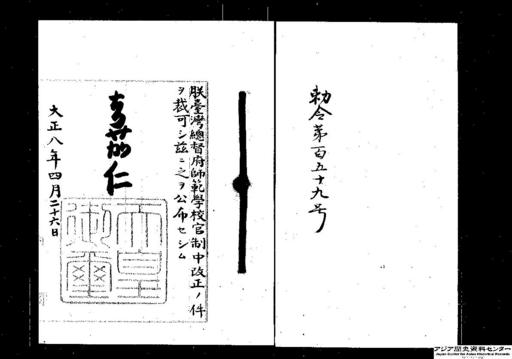 勅令第百五十九号
朕臺灣總督府師範學校官制中改正ノ件
ヲ裁可シ茲ニ之ヲ公布セシム
嘉仁
天皇御璽
大正八年四月二十六日
アジア歴史資料センター
Japan Center for Asian Historical Records